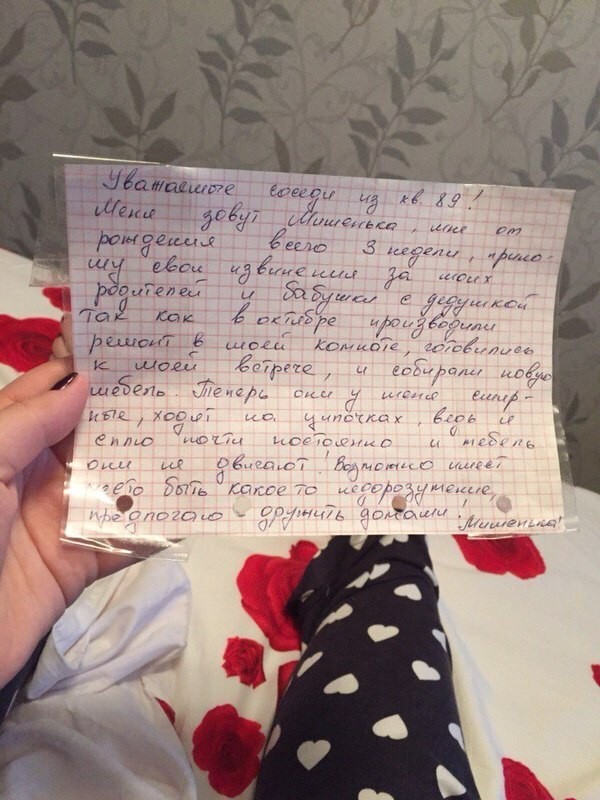 Уважаемые соседи из кв. 89!
Меня зовут Мишенька, мне от
рождения всего 3 недели, прино-
шу свои извинения за моих
родителей и бабушки с дедушкой
Так как в октябре производили
ремонт в моей комнате, готовились
к моей встрече, и собирали новую
мебель. Теперь они у меня смир-
ные, ходят на цыпочках, ведь я
сплю почти постоянно и мебель
они не двигают! Возможно имеет
место быть какое то недоразумение,
предлогаю дружить домами!
Мишенька!